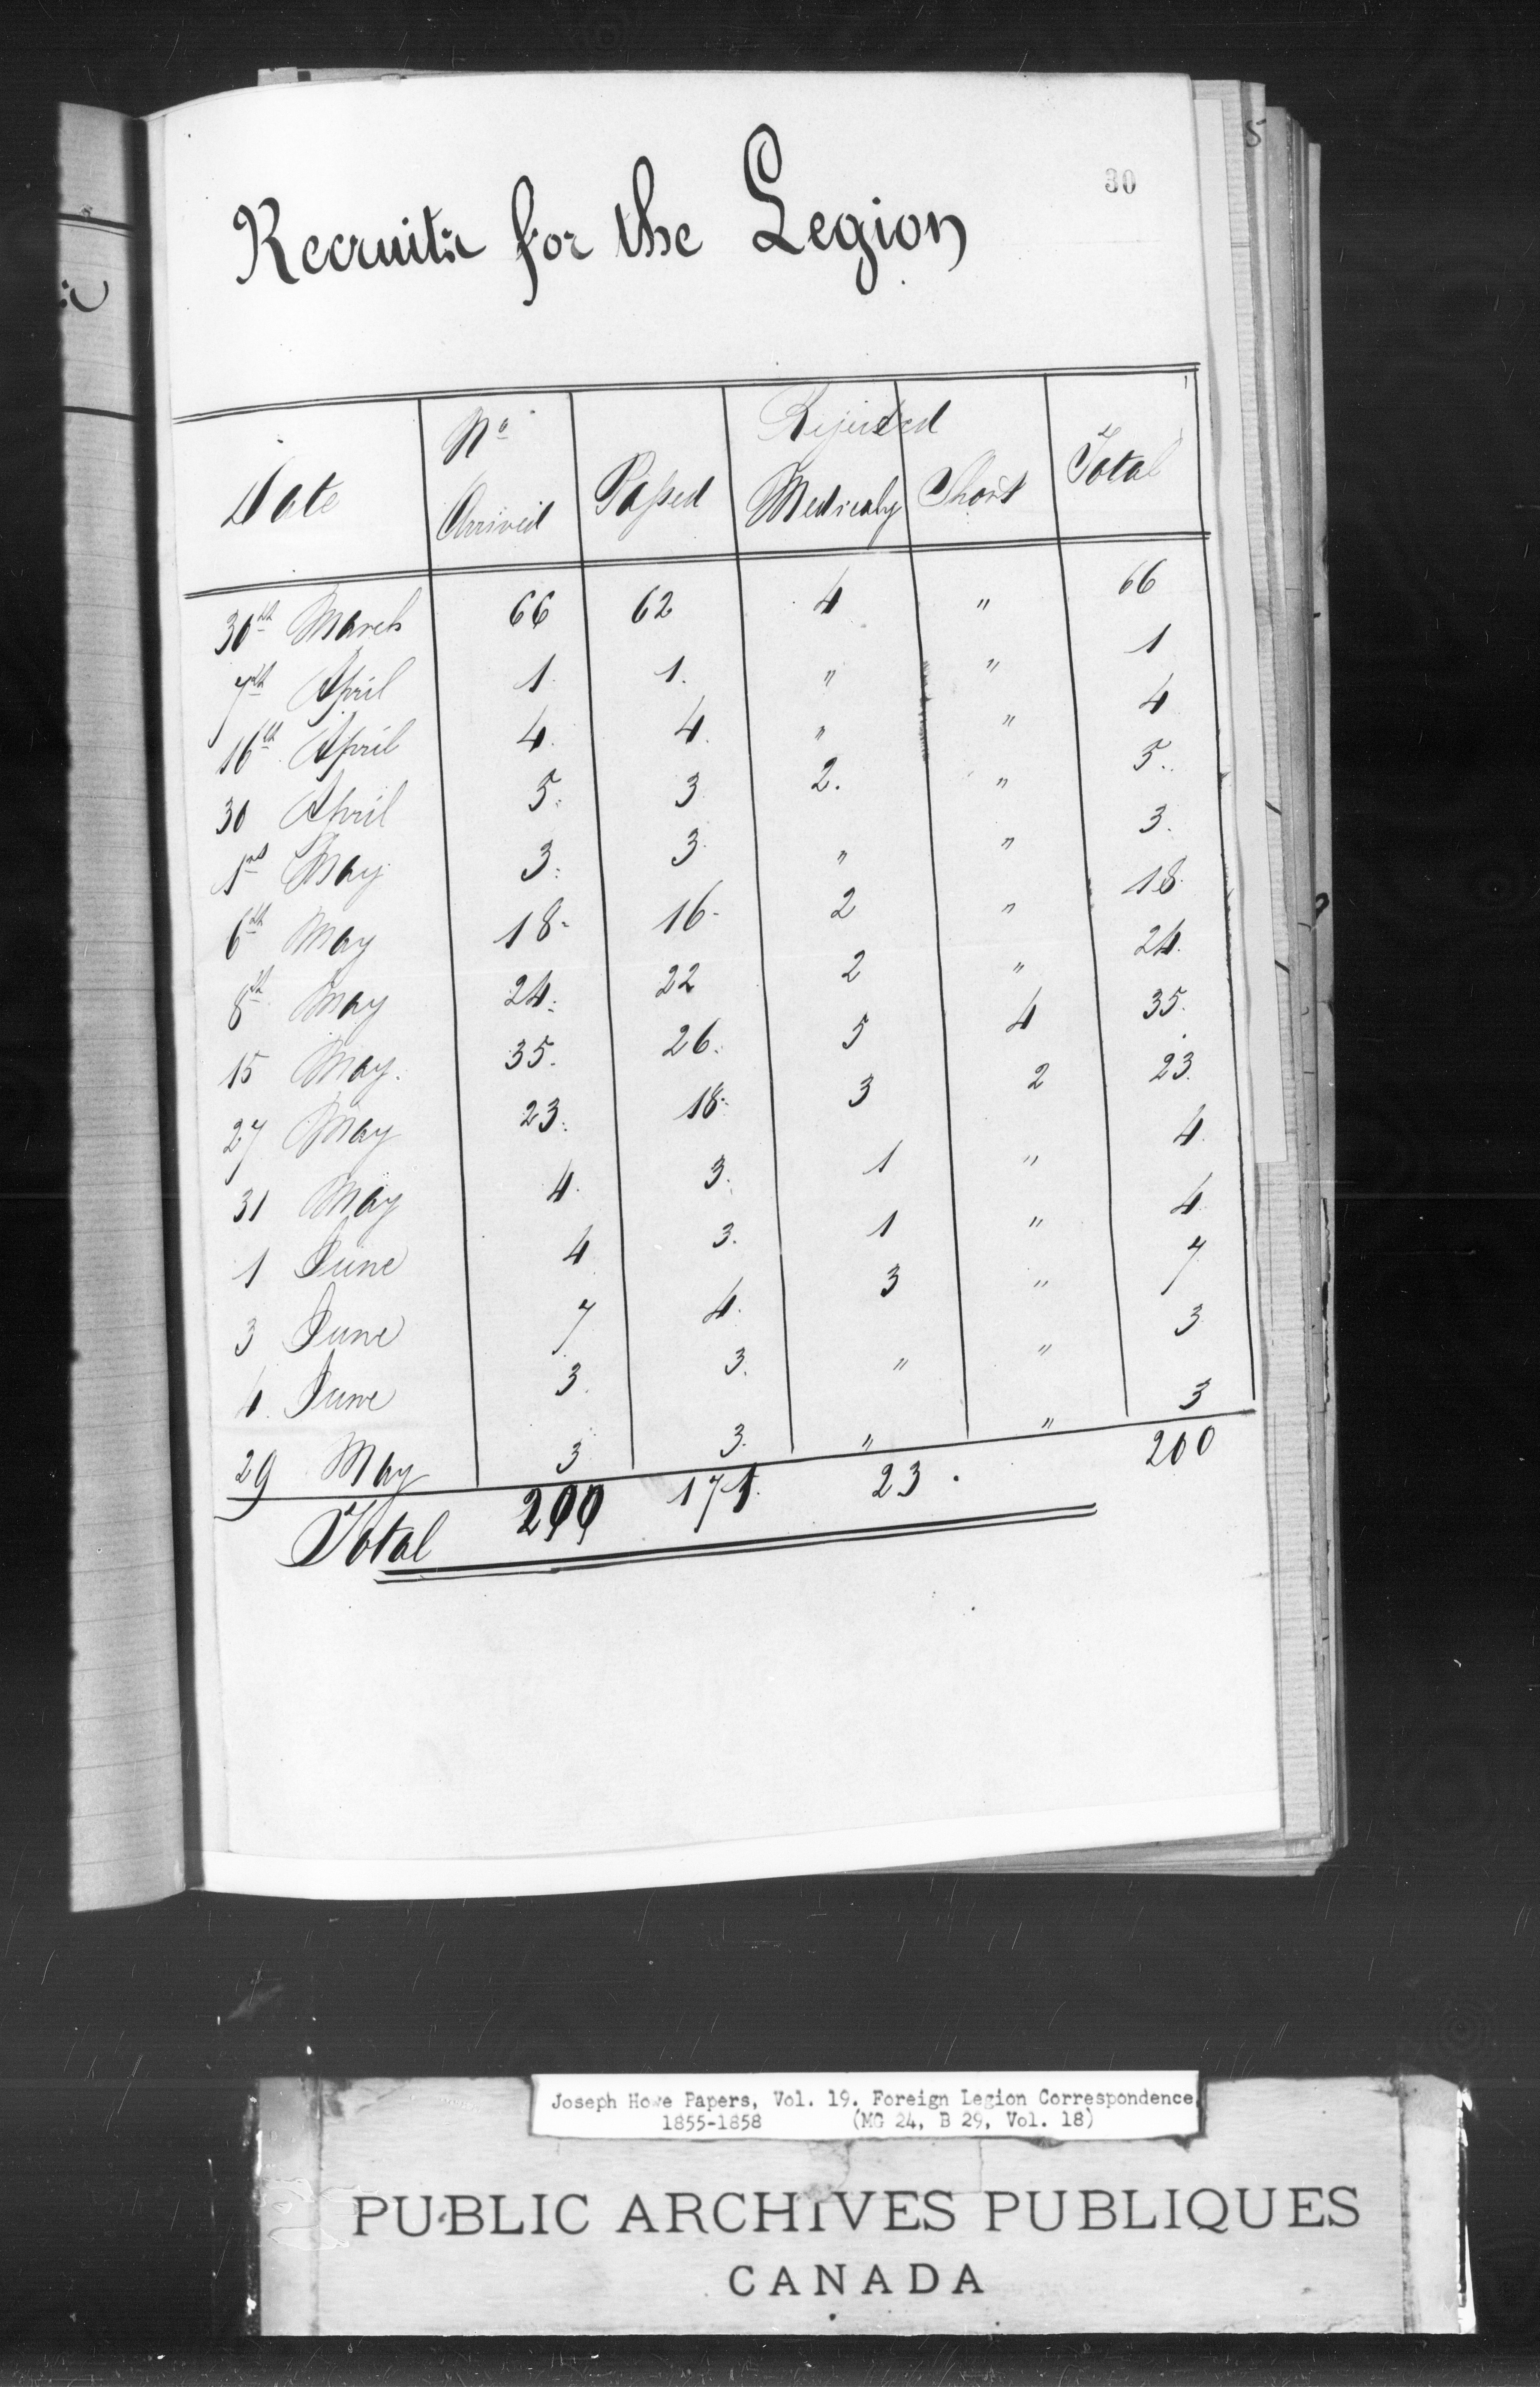 30
5
Recruits for the Legion
Date No Arrived Passed Rejected Medicaly Short Total
30th March 66 62 4 " 66
7th April 1. 1. " " 1
16th April 4. 4. " " 4
30 April 5. 3 2. " 5.
1st May 3. 3. " " 3.
6th May 18. 16. 2 " 18.
8th May 24. 22 2 " 24.
15 May. 35. 26. 5 4 35.
27 May 23. 18. 3 2 23.
31 May 4. 3. 1 " 4.
1 June 4 3. 1 " 4.
3 June 7 4. 3 " 7
4. June 3. 3. " " 3
29 May 3 3. " " 3
Total 200 171. 23. 200
Joseph Howe Papers, Vol. 19. Foreign Legion Correspondence,
1855-1858 (MG 24, B 29, Vol. 18)
PUBLIC ARCHIVES PUBLIQUES
CANADA